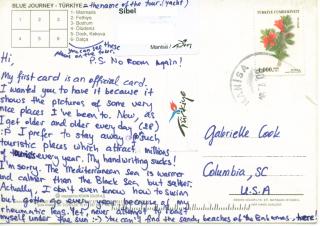 BLUE JOURNEY - TÜRKİYE → the name of the tour (yacht)
1- Marmaris
2- Fethiye
3- Bodrum
4- Ölüdeniz
5- Dock, Kekova
6- Datça
Sibel
Manisa/
you can see these
places on the tour.
P.S. No Room Again!
TÜRKİYE CUMHURİYETİ
MANİSA
Türkiye
Hi,
My first card is an official card.
I wanted you to have it because it
shows the pictures of some very
nice places I've been to. Now, as
I get older and older every day (28)
:P I prefer to stay away
touristic places which attract millions
of tourists every year. My handwriting sucks!
I'm sorry. The Mediterranean Sea is warmer
and calmer than the Black Sea, but saltier.
Actually, I don't even know how to swim
but gotta go every year because of my
rheumatic legs. Yet, never attempt to roast
myself under the sun :-) You can't find the sandy beaches of the Ephesus here!
Gabrielle Cook
Columbia, SC
U.S.A